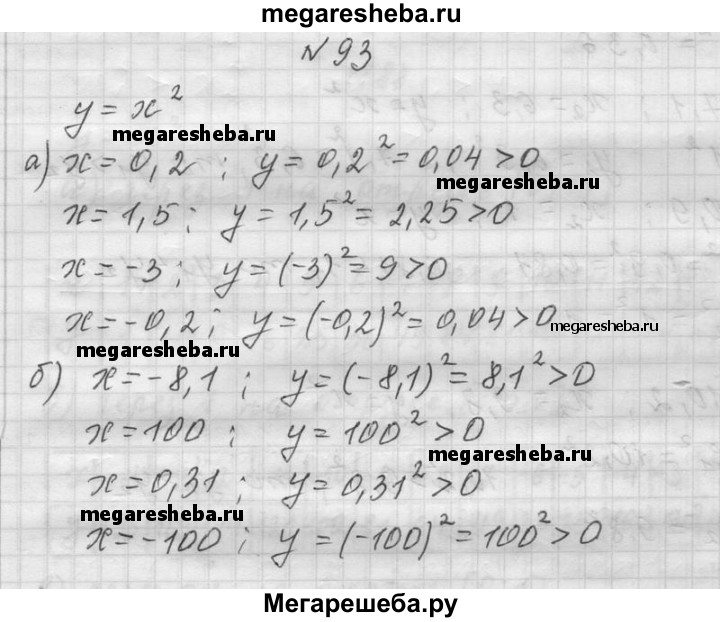 megaresheba.ru
№ 93
y = x²
megaresheba.ru
а) x = 0,2 ; y = 0,2² = 0,04 > 0
megaresheba.ru
x = 1,5 ; y = 1,5² = 2,25 > 0
x = -3 ; y = (-3)² = 9 > 0
x = -0,2 ; y = (-0,2)² = 0,04 > 0
megaresheba.ru
megaresheba.ru
б) x = -8,1 ; y = (-8,1)² = 8,1² > 0
x = 100 ; y = 100² > 0
megaresheba.ru
x = 0,31 ; y = 0,31² > 0
megaresheba.ru
x = -100 ; y = (-100)² = 100² > 0
Мегарешеба.ру